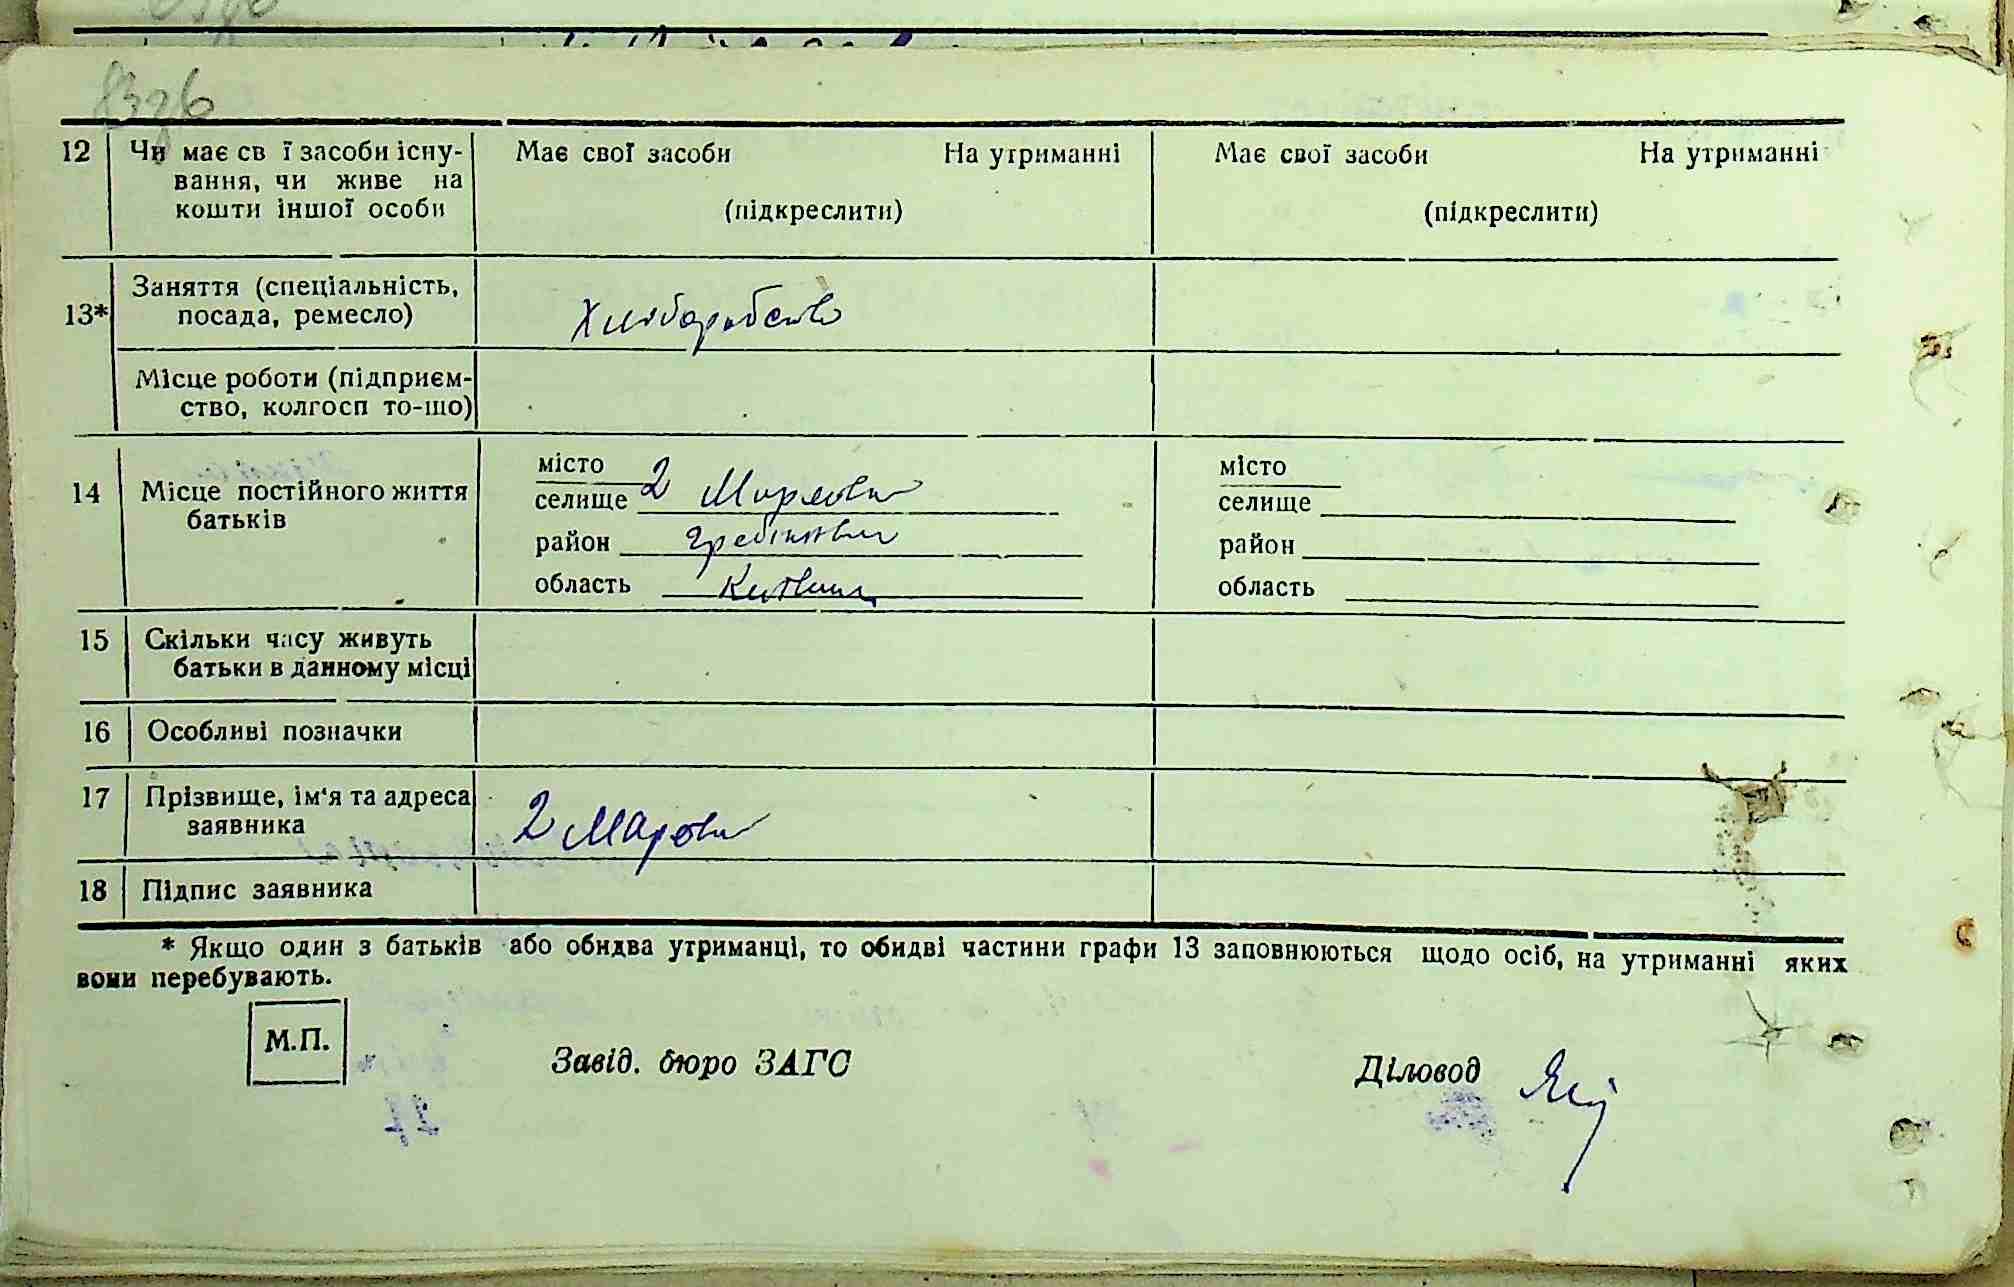 12 Чи має св ї засоби існу- Має свої засоби На утриманні Має свої засоби На утриманні
вання, чи живе на
кошти іншої особи (підкреслити) (підкреслити)
13* Заняття (спеціальність,
посада, ремесло) Хліборобство
Місце роботи (підприєм-
ство, колгосп то-що)
14 Місце постійного життя
батьків
місто місто
селище 2 селище
район район
область область
15 Скільки часу живуть
батьки в данному місці
16 Особливі позначки
17 Прізвище, ім'я та адреса
заявника 2
18 Підпис заявника
* Якщо один з батьків або обидва утриманці, то обидві частини графи 13 заповнюються щодо осіб, на утриманні яких
вони перебувають.
М.П.
Завід. бюро ЗАГС Діловод